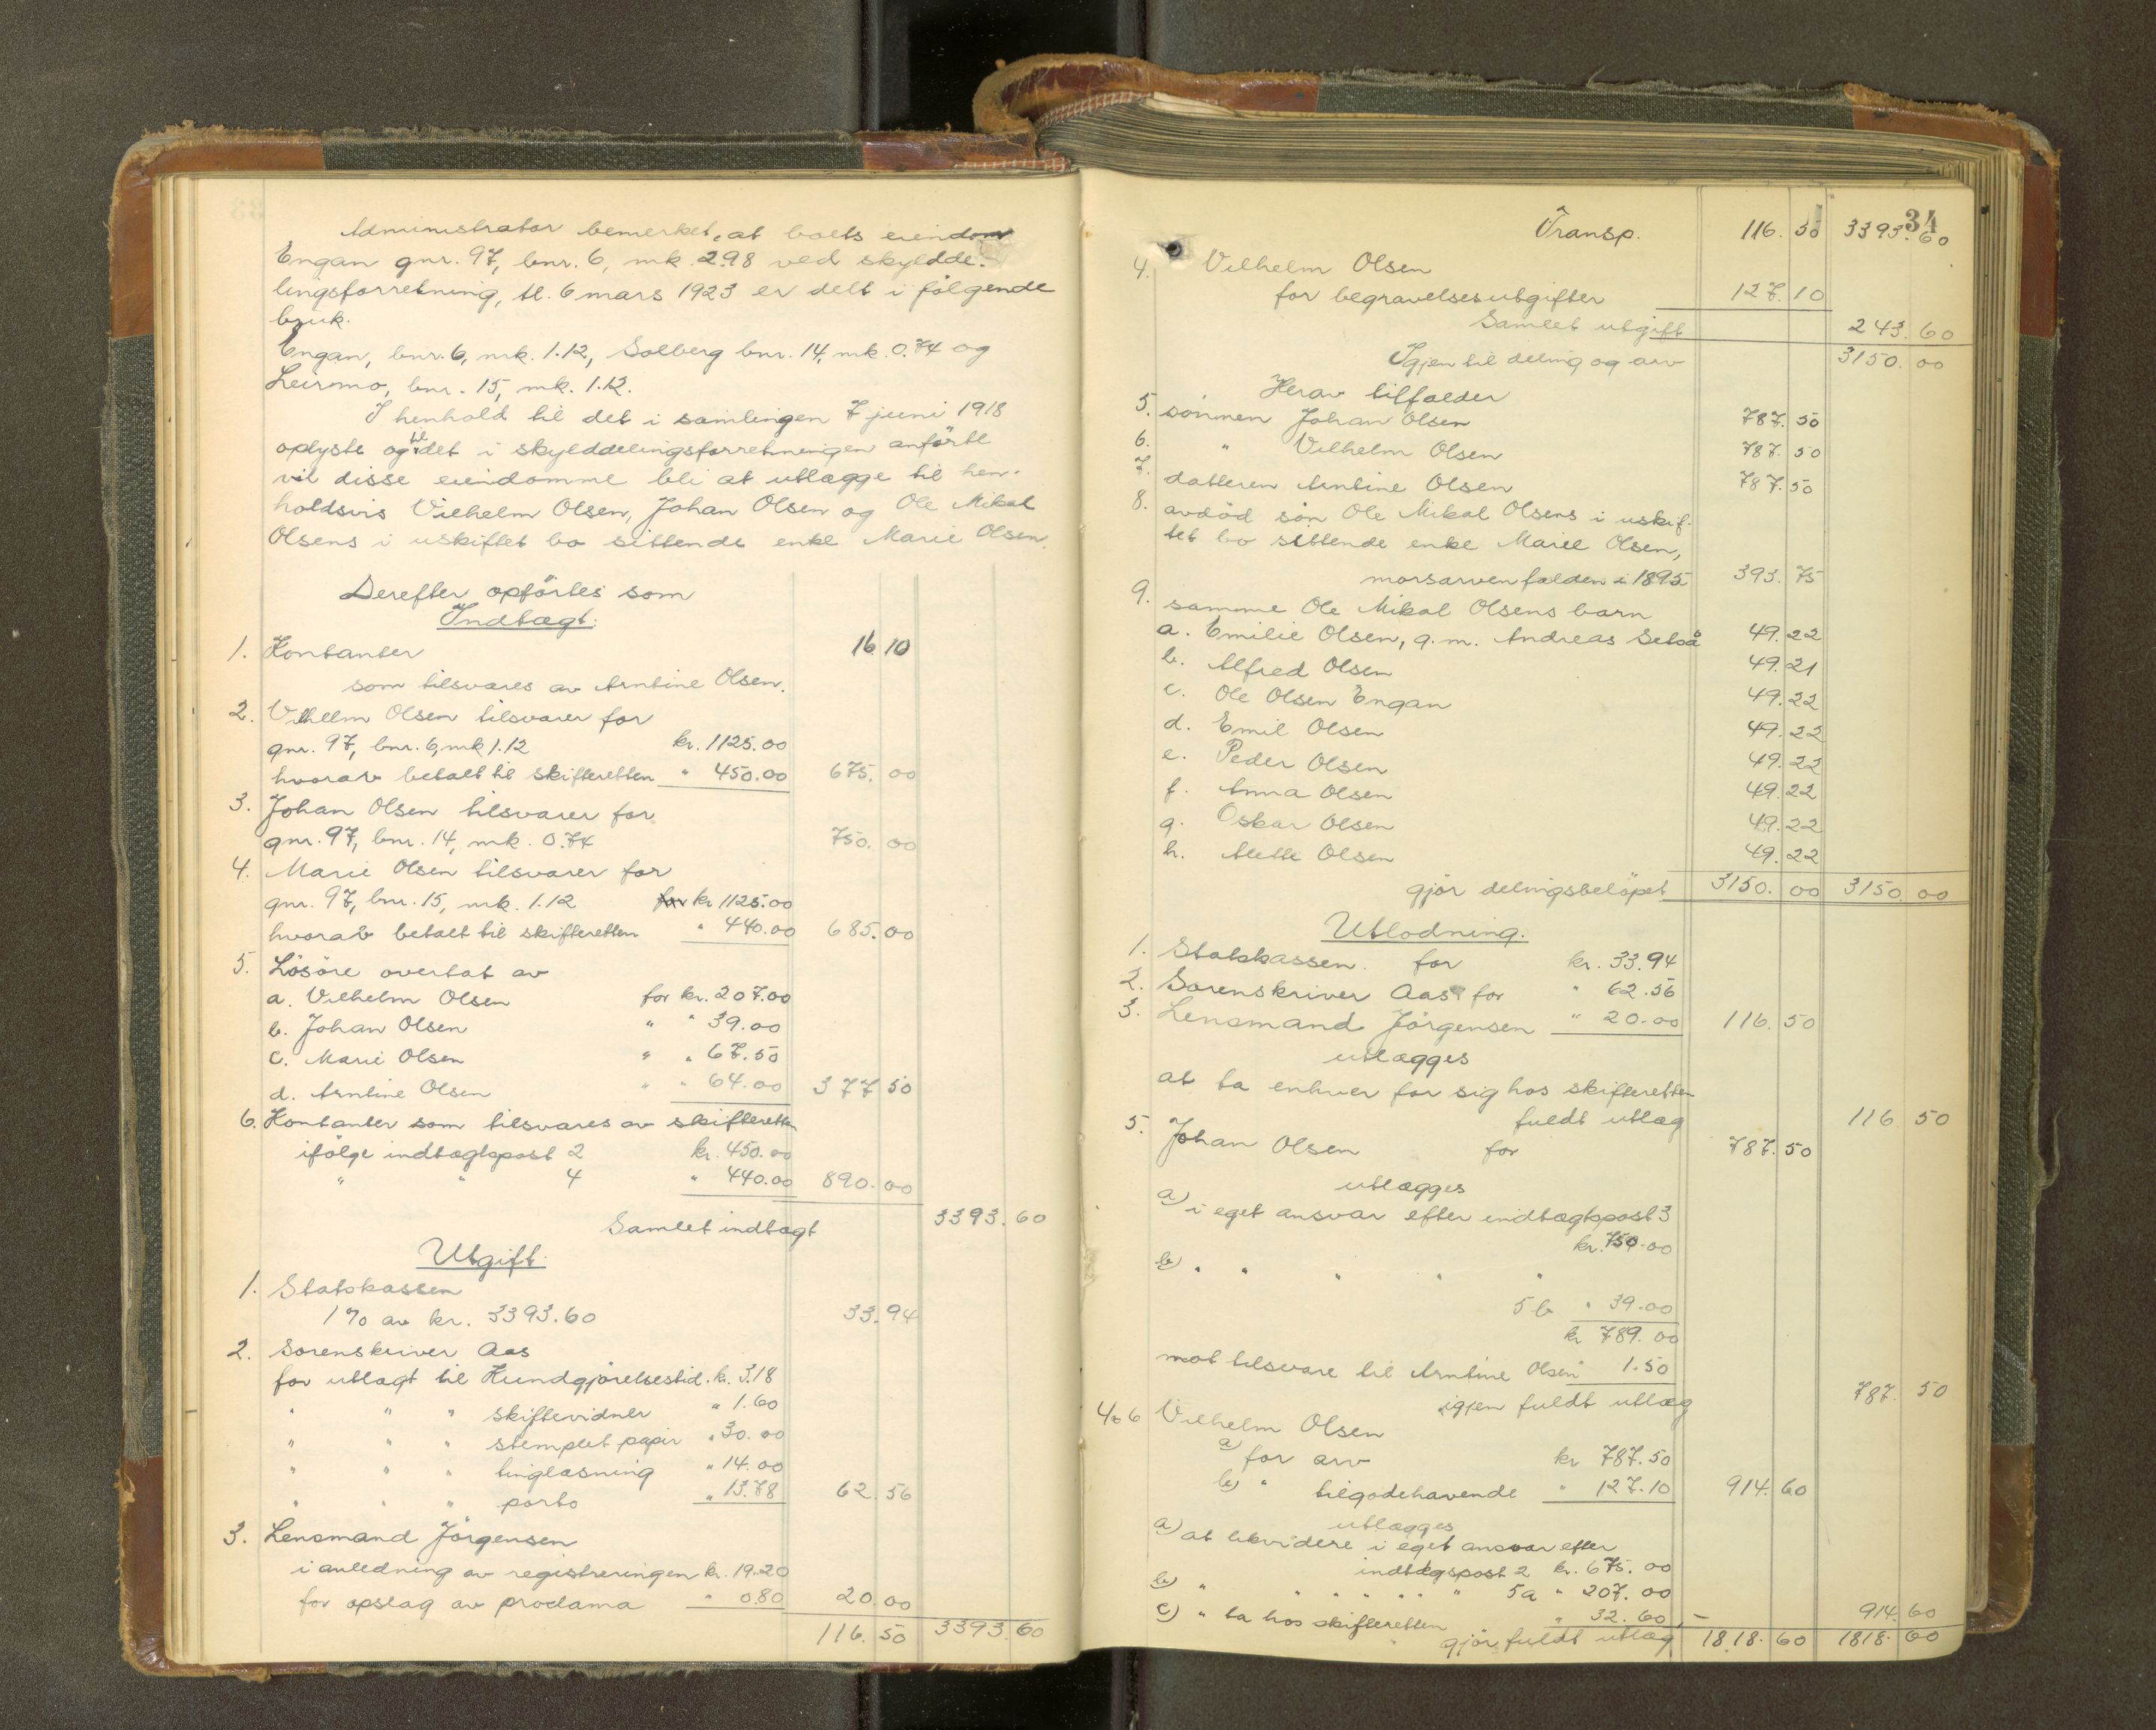 Administrator bemerket, at boets eiendom
Engan gnr. 97, bnr. 6, mk. 2.98 ved skylddel-
lingsforretning, tl. 6 mars 1923 er delt i følgende
bruk.
Engan, bnr. 6, mk. 1.12, Solberg bnr. 14, mk. 0.74 og
Leirmo, bnr. 15, mk. 1.12.
I henhold til det i samlingen 7 juni 1918
oplyste og til det i skylddelingsforretningen anførte
vil disse eiendomme bli at utlægge til hen-
holdsvis Vilhelm Olsen, Johan Olsen og Ole Mikal
Olsens i uskiftet bo sittende enke Marie Olsen.
Derefter opførtes som
Indtægt:
1. Kontanter 16 10
som tilsvares av Arntine Olsen.
2. Vilhelm Olsen tilsvarer for
gnr. 97, bnr. 6, mk 1.12 kr. 1125.00
hvorav betalt til skifteretten " 450.00 675. 00
3. Johan Olsen tilsvarer for
gnr. 97, bnr. 14, mk. 0.74 750. 00
4. Marie Olsen tilsvarer for
gnr. 97, bnr. 15, mk. 1.12 for kr 1125.00
hvorav betalt til skifteretten " 440.00 685.00
5. Løsøre overtat av
a. Vilhelm Olsen for kr. 207.00
b. Johan Olsen " " 39.00
c. Marie Olsen " " 67.50
d. Arntine Olsen " " 64.00 377 50
6. Kontanter som tilsvares av skifteretten
ifølge indtægtspost 2 kr. 450.00
" " 4 " 440.00 890. 00
Samlet indtægt 3393. 60
Utgift:
1. Statskassen
1% av kr. 3393.60 33.94
2. Sorenskriver Aas
for utlagt til Kundgjørelsestid. kr. 3.18
" " " skiftevidner " 1.60
" " " stemplet papir " 30.00
" " " tinglæsning " 14.00
" " " porto " 13.78 62. 56
3. Lensmand Jørgensen
i anledning av registreringen kr. 19.20
for opslag av proclama " 0.80 20.00
116. 50 3393. 60
34
Transp. 116. 50 3393. 60
4. Vilhelm Olsen
for begravelsesutgifter 127. 10
Samlet utgift 243. 60
Igjen til deling og arv 3150. 00
Herav tilfalder
5. sønnen Johan Olsen 787. 50
6. " Vilhelm Olsen 787. 50
7. datteren Arntine Olsen 787. 50
8. avdød søn Ole Mikal Olsens i uskif-
tet bo sittende enke Marie Olsen,
morsarven falden i 1895 393. 75
9. samme Ole Mikal Olsens barn
a. Emilie Olsen, g. m. Andreas Setså 49. 22
b. Alfred Olsen 49. 21
c. Ole Olsen Engan 49. 22
d. Emil Olsen 49. 22
e. Peder Olsen 49. 22
f. Anna Olsen 49. 22
g. Oskar Olsen 49. 22
h. Mette Olsen 49. 22
gjør delingsbeløpet 3150. 00 3150. 00
Utlodning.
1. Statskassen for kr. 33.94
2. Sorenskriver Aas for " 62.56
3. Lensmand Jørgensen " 20.00 116. 50
utlægges
at ta enhver for sig hos skifteretten
fuldt utlæg 116 50
5. Johan Olsen for 787. 50
utlægges
a) i eget ansvar efter indtægtspost 3
kr. 750.00
b) " " " " "
5 b " 39.00
kr 789.00
mot tilsvare til Arntine Olsen " 1.50
igjen fuldt utlæg 787. 50
4 o 6 Vilhelm Olsen
a) for arv kr 787.50
b) " tilgodehavende " 127.10 914. 60
utlægges
a) at likvidere i eget ansvar efter
indtægspost 2 kr. 675.00
b) " " " " " " 5a " 207.00
c) " ta hos skifteretten " 32.60 - 914. 60
gjør fuldt utlæg 1818. 60 1818. 60